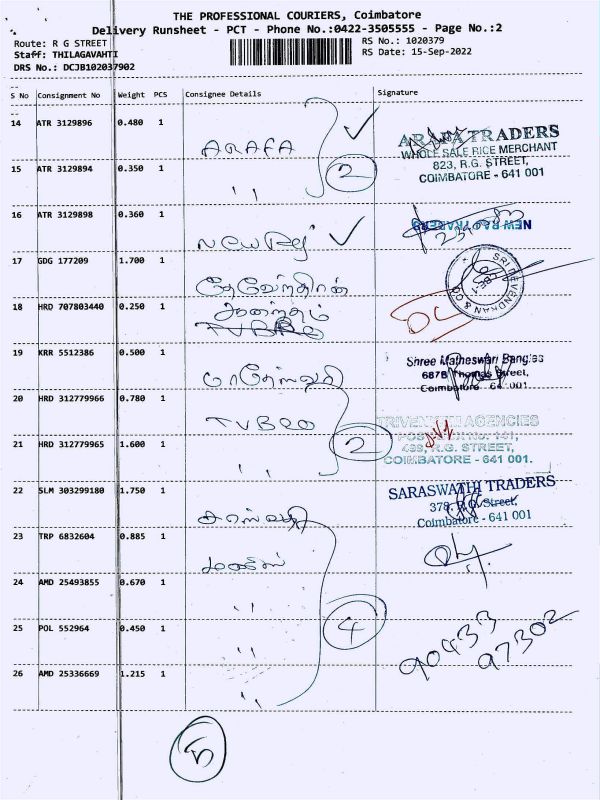 THE PROFESSIONAL COURIERS, Coimbatore
Delivery Runsheet - PCT - Phone No.:0422-3505555 - Page No.:2
Route: R G STREET
RS No.: 1020379
Staff: THILAGAVAHTI
RS Date: 15-Sep-2022
DRS No.: DCJB102037902
S No Consignment No Weight PCS Consignee Details Signature
14 ATR 3129896 0.480 1 ARAFA
ARAFA TRADERS
WHOLE SALE RICE MERCHANT
823, R.G. STREET,
COIMBATORE - 641 001
15 ATR 3129894 0.350 1 ,,
2
16 ATR 3129898 0.360 1
NEW RAJ TRADERS
17 GDG 177209 1.700 1
18 HRD 707803440 0.250 1
TVBRO
19 KRR 5512386 0.500 1
Shree Matheswari Bangles
687B Thomas Street,
20 HRD 312779966 0.780 1 TVBRO
TRIVENI AGENCIES
21 HRD 312779965 1.600 1 ,,
2
R.G. STREET,
COIMBATORE - 641 001.
22 SLM 303299180 1.750 1
SARASWATHI TRADERS
378, R.G. Street,
Coimbatore - 641 001
23 TRP 6832604 0.885 1
24 AMD 25493855 0.670 1 ,,
25 POL 552964 0.450 1 ,,
4
90433
97302
26 AMD 25336669 1.215 1 ,,
5